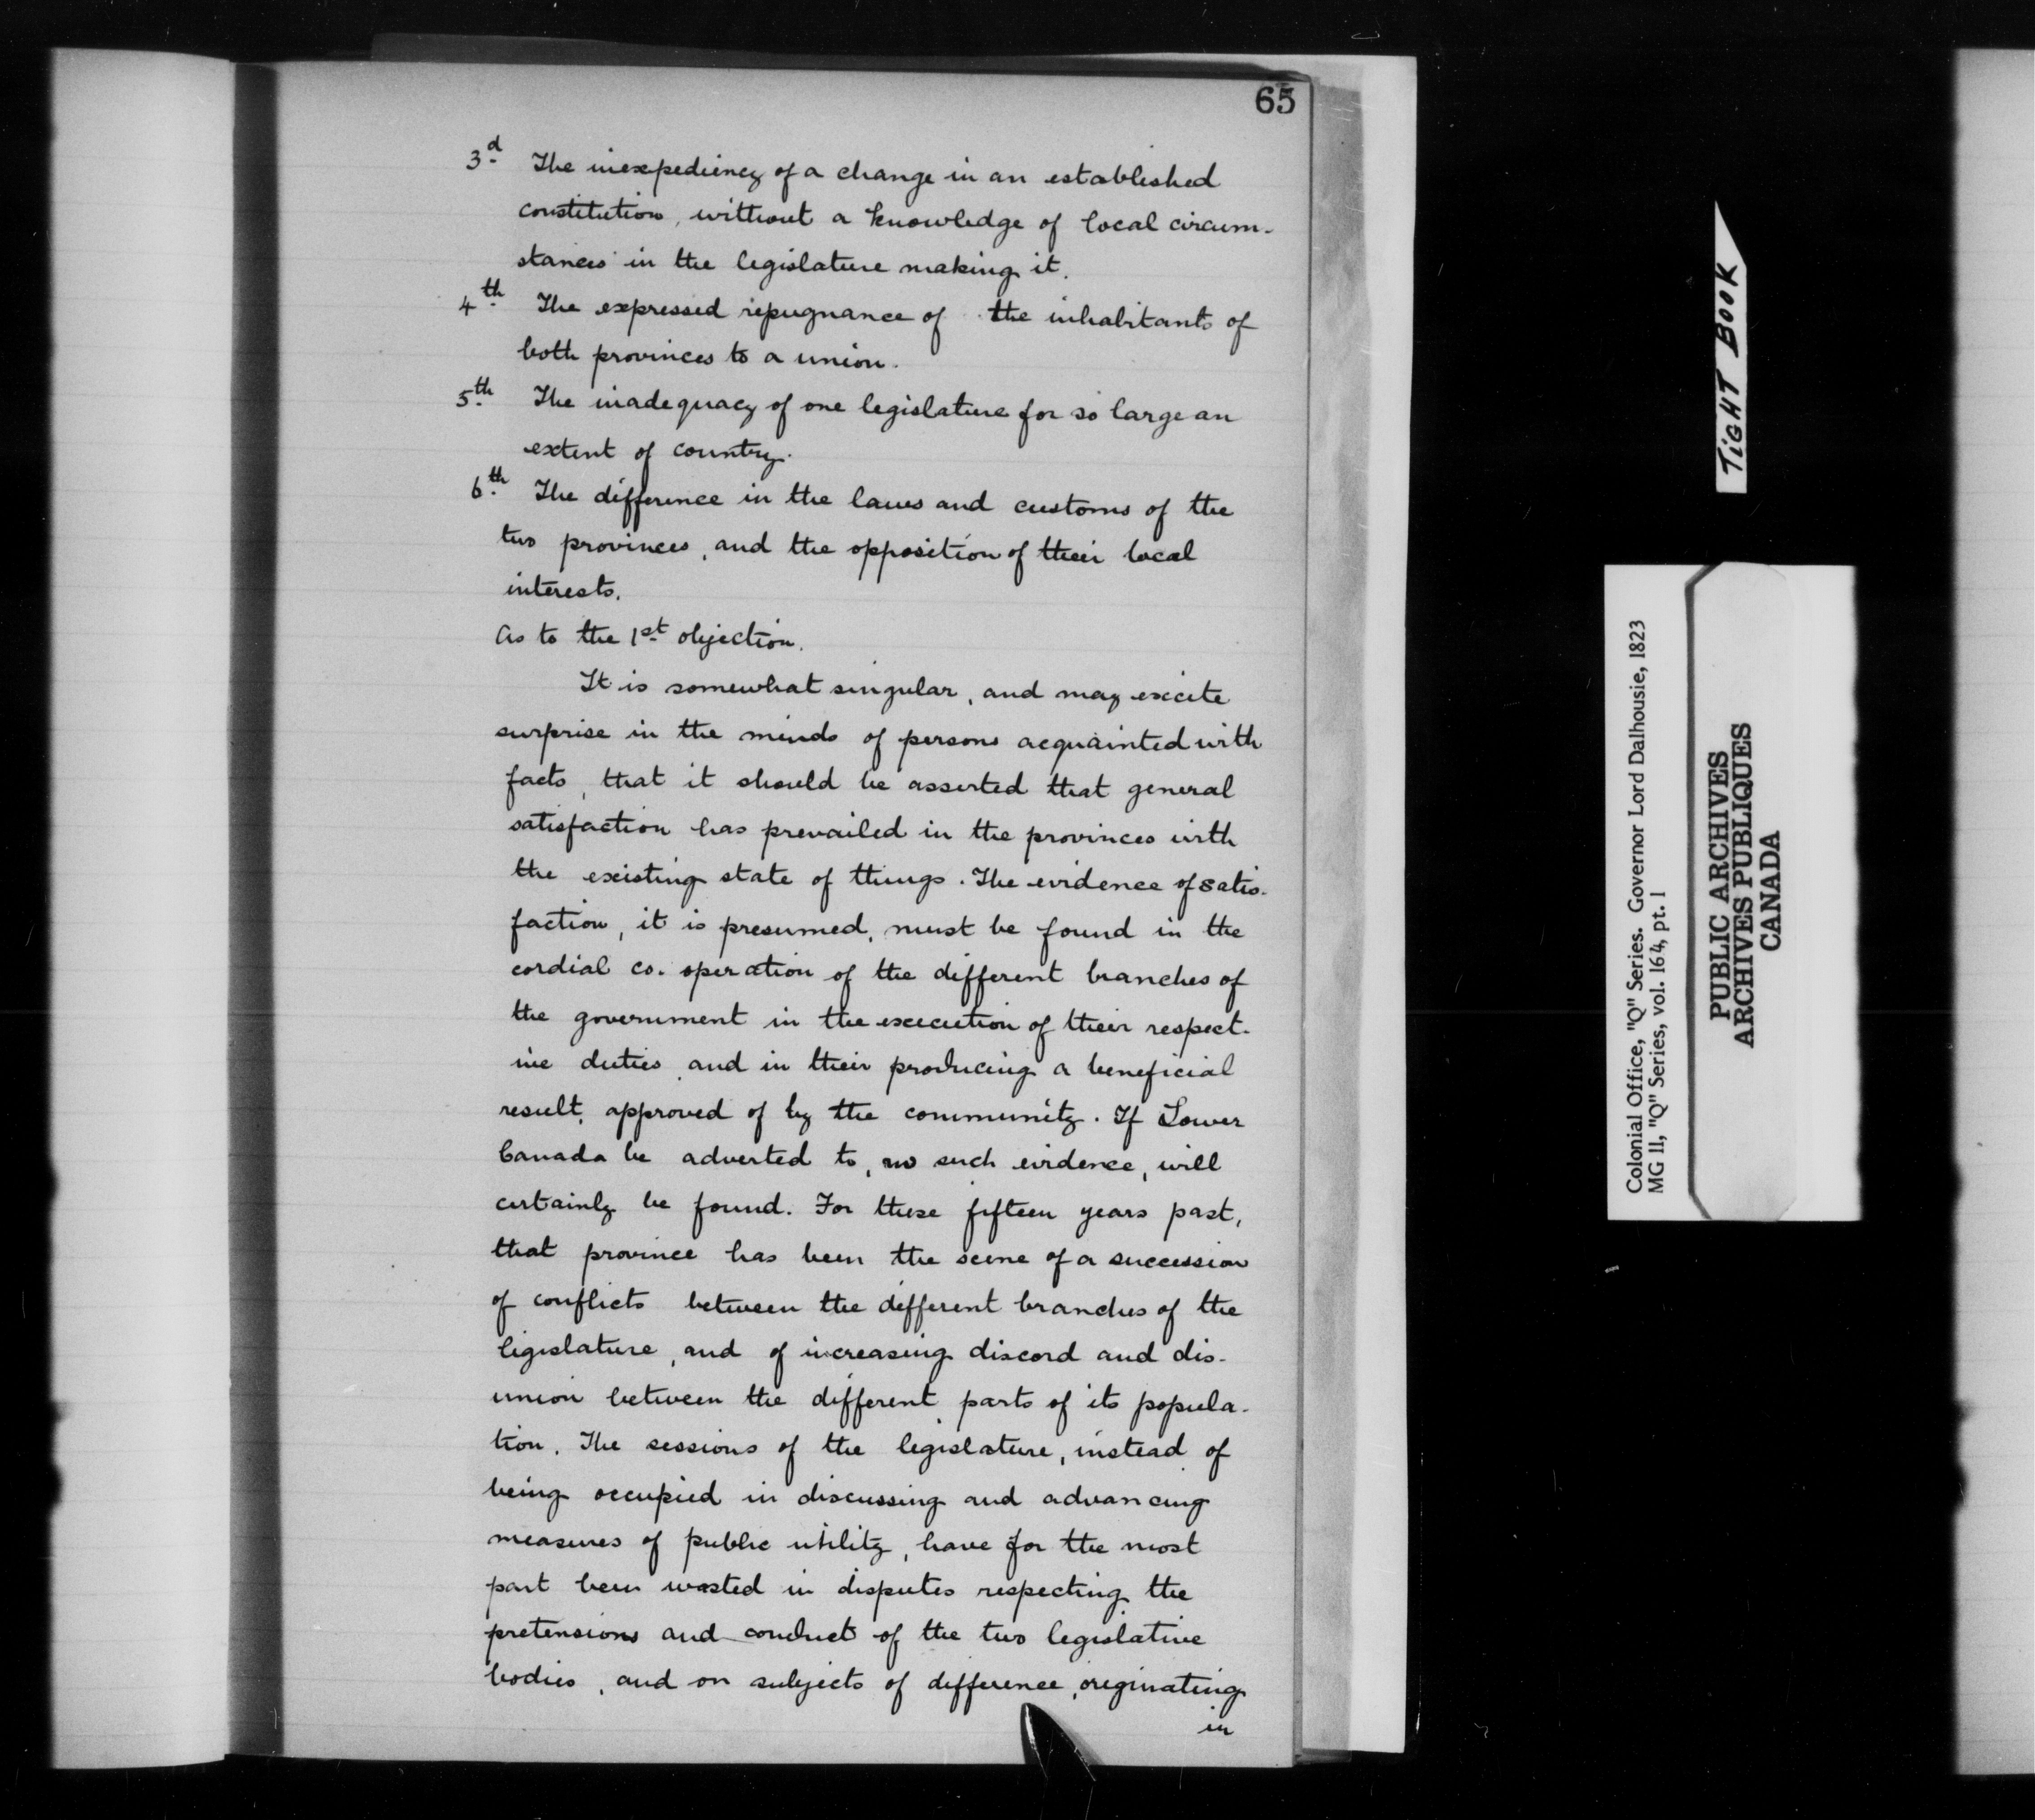 65
3d The inexpediency of a change in an established
constitution, without a knowledge of local circum-
stances in the legislature making it.
4th The expressed repugnance of the inhabitants of
both provinces to a union.
5th The inadequacy of one legislature for so large an
extent of country.
6th The difference in the laws and customs of the
two provinces, and the opposition of their local
interests.
As to the 1st objection.
It is somewhat singular, and may excite
surprise in the minds of persons acquainted with
facts, that it should be asserted that general
satisfaction has prevailed in the provinces with
the existing state of things. The evidence of satis-
faction, it is presumed, must be found in the
cordial co-operation of the different branches of
the government in the execution of their respect-
ive duties, and in their producing a beneficial
result, approved of by the community. If Lower
Canada be adverted to, no such evidence, will
certainly be found. For these fifteen years past,
that province has been the scene of a succession
of conflicts between the different branches of the
legislature, and of increasing discord and dis-
union between the different parts of its popula-
tion. The sessions of the legislature, instead of
being occupied in discussing and advancing
measures of public utility, have for the most
part been wasted in disputes respecting the
pretensions and conduct of the two legislative
bodies, and on subjects of difference, originating
in
TiGHT BOOK
Colonial Office, "Q" Series. Governor Lord Dalhousie, 1823
MG 11, "Q" Series, vol. 164, pt. 1
PUBLIC ARCHIVES
ARCHIVES PUBLIQUES
CANADA